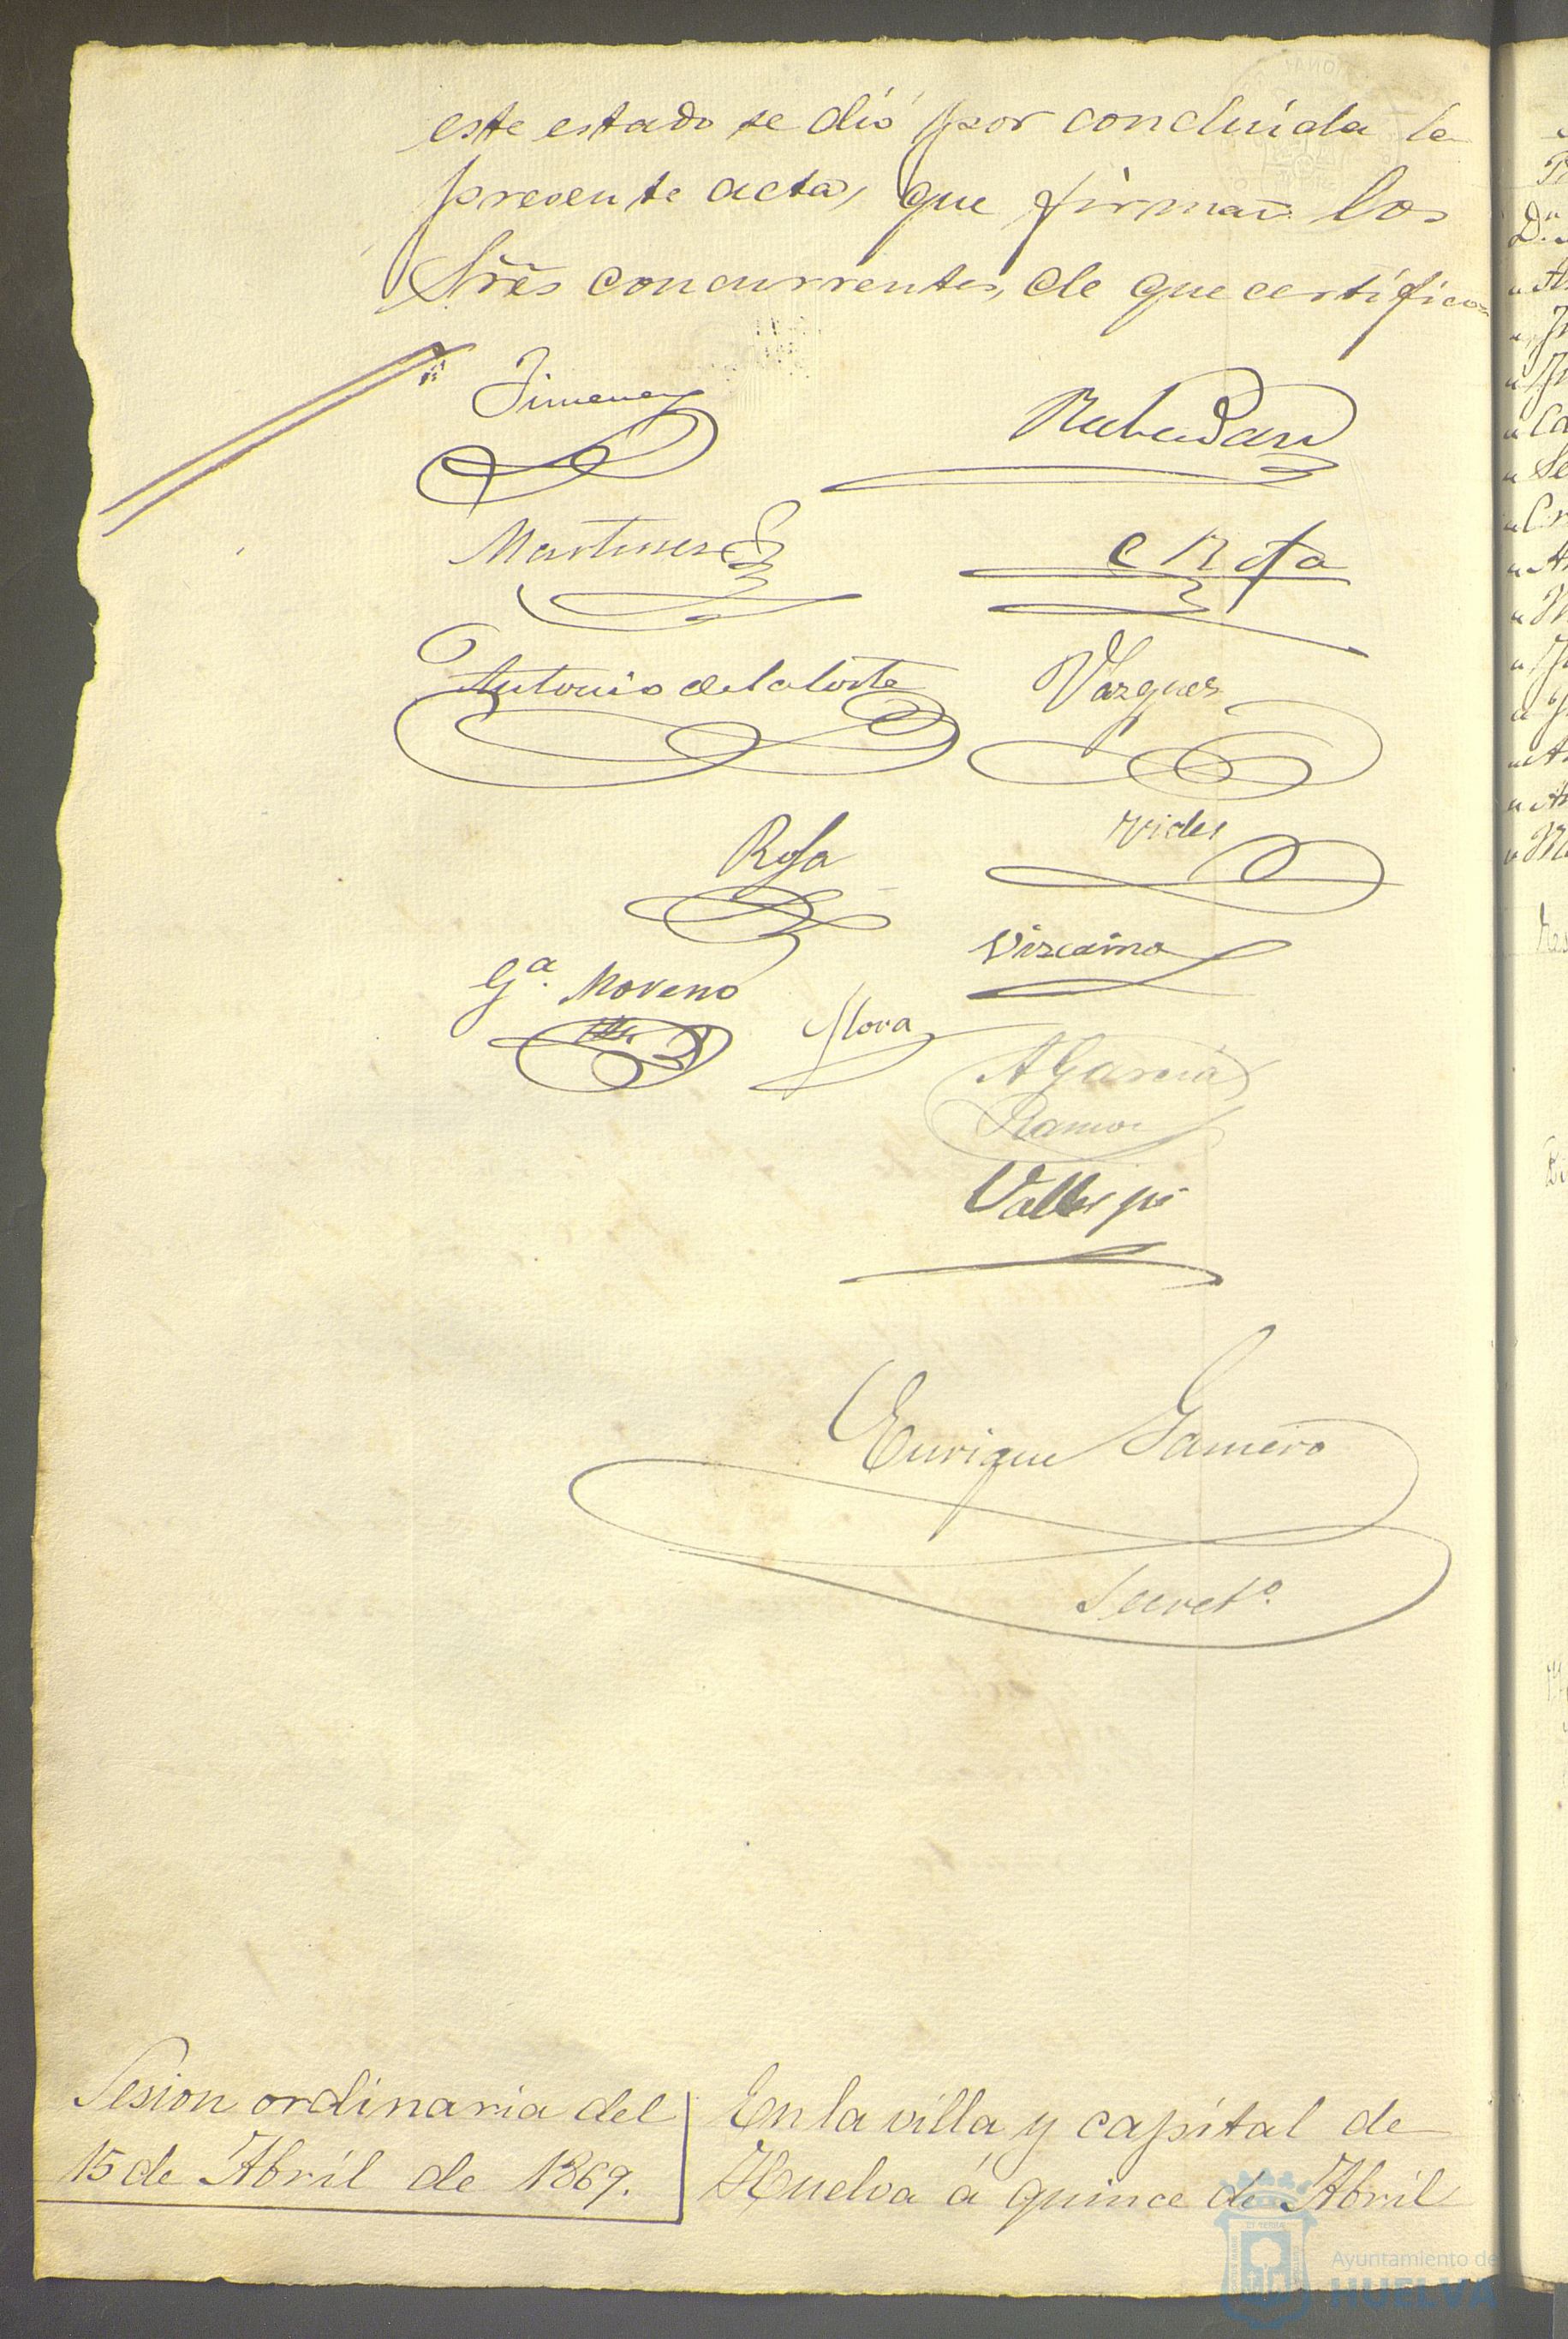 este estado se dió por concluida la
presente acta, que firman los
Sres concurrentes, de que certifico
Jimenez
Rabadan
Martinez
Antonio de la Corte
Vazquez
Rosa
Vides
Vizcaino
Gª. Moreno
Mora
A Garcia
Ramos
Enrique Gamero
Secretº.
Sesion ordinaria del
15 de Abril de 1869.
En la villa y capital de
Huelva á quince de Abril
Ayuntamiento de
HUELVA